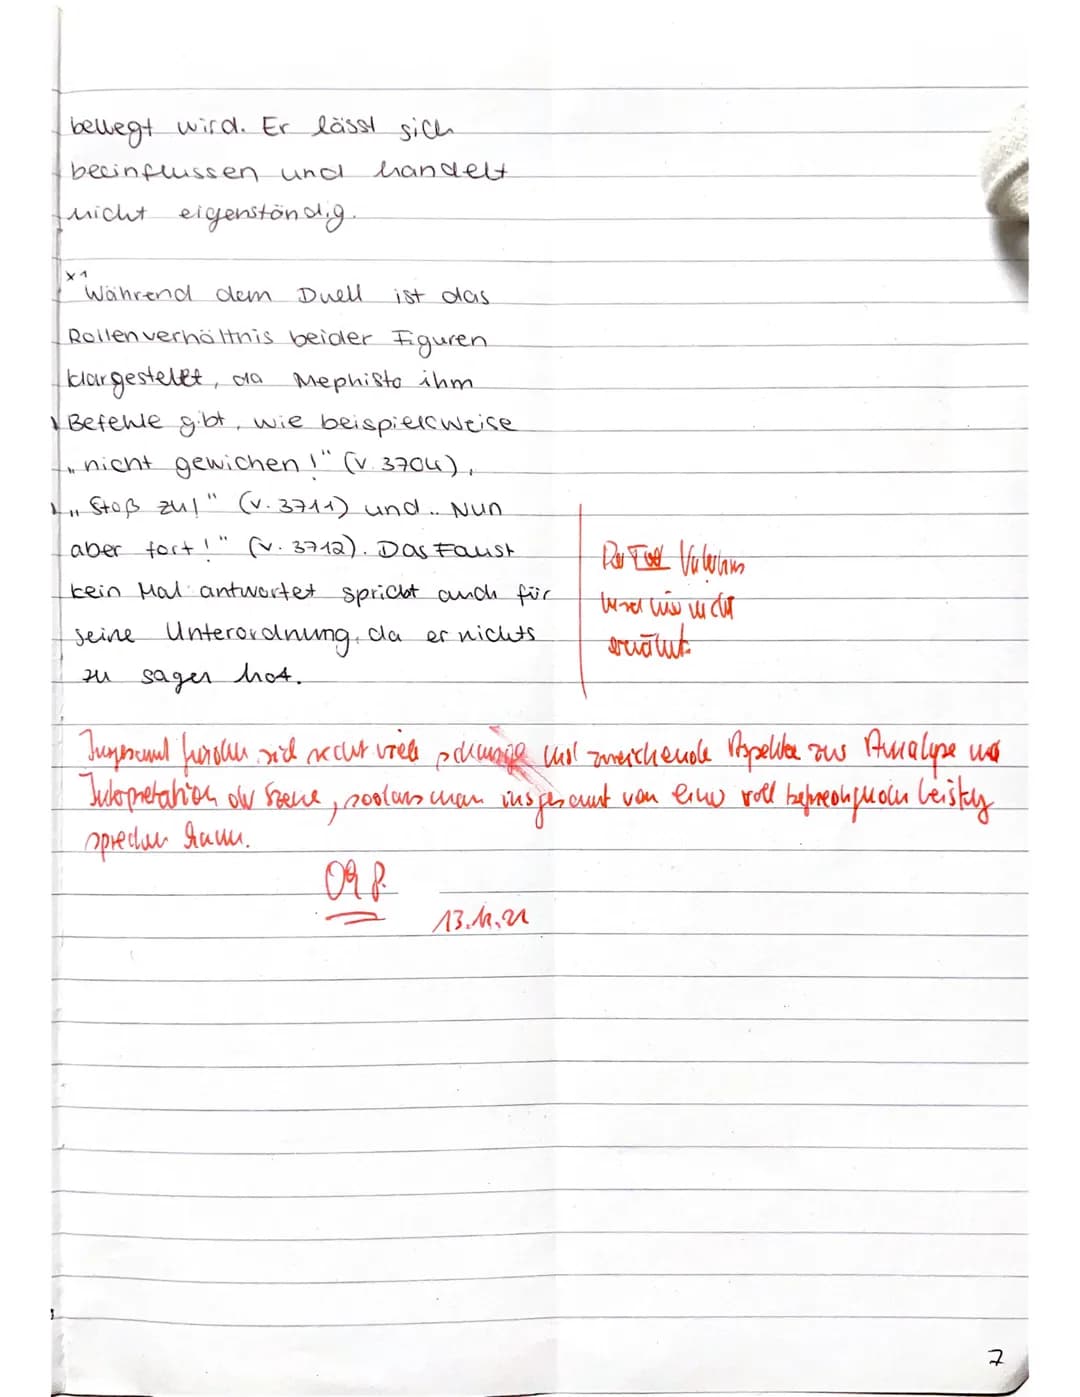 bewegt wird. Er lässt sich
beeinflussen und handelt
nicht eigenständig.
x1
Während dem Duell ist das
Rollenverhältnis beider Figuren
klargestellt, da Mephisto ihm
Befehle gibt, wie beispielsweise
„nicht gewichen!" (v. 3704),
„Stoß zu!" (v. 3711) und „Nun
aber fort!" (v. 3712). Das Faust
kein Mal antwortet spricht auch für
seine Unterordnung, da er nichts
zu sagen hat.
Der Tod Valentins
wird hier nicht
erwähnt.
Insgesamt finden sich recht viele und zureichende Aspekte zur Analyse und
Interpretation der Szene, sodass man insgesamt von einer voll befriedigenden Leistung
sprechen kann.
09 P.
13.11.21
7